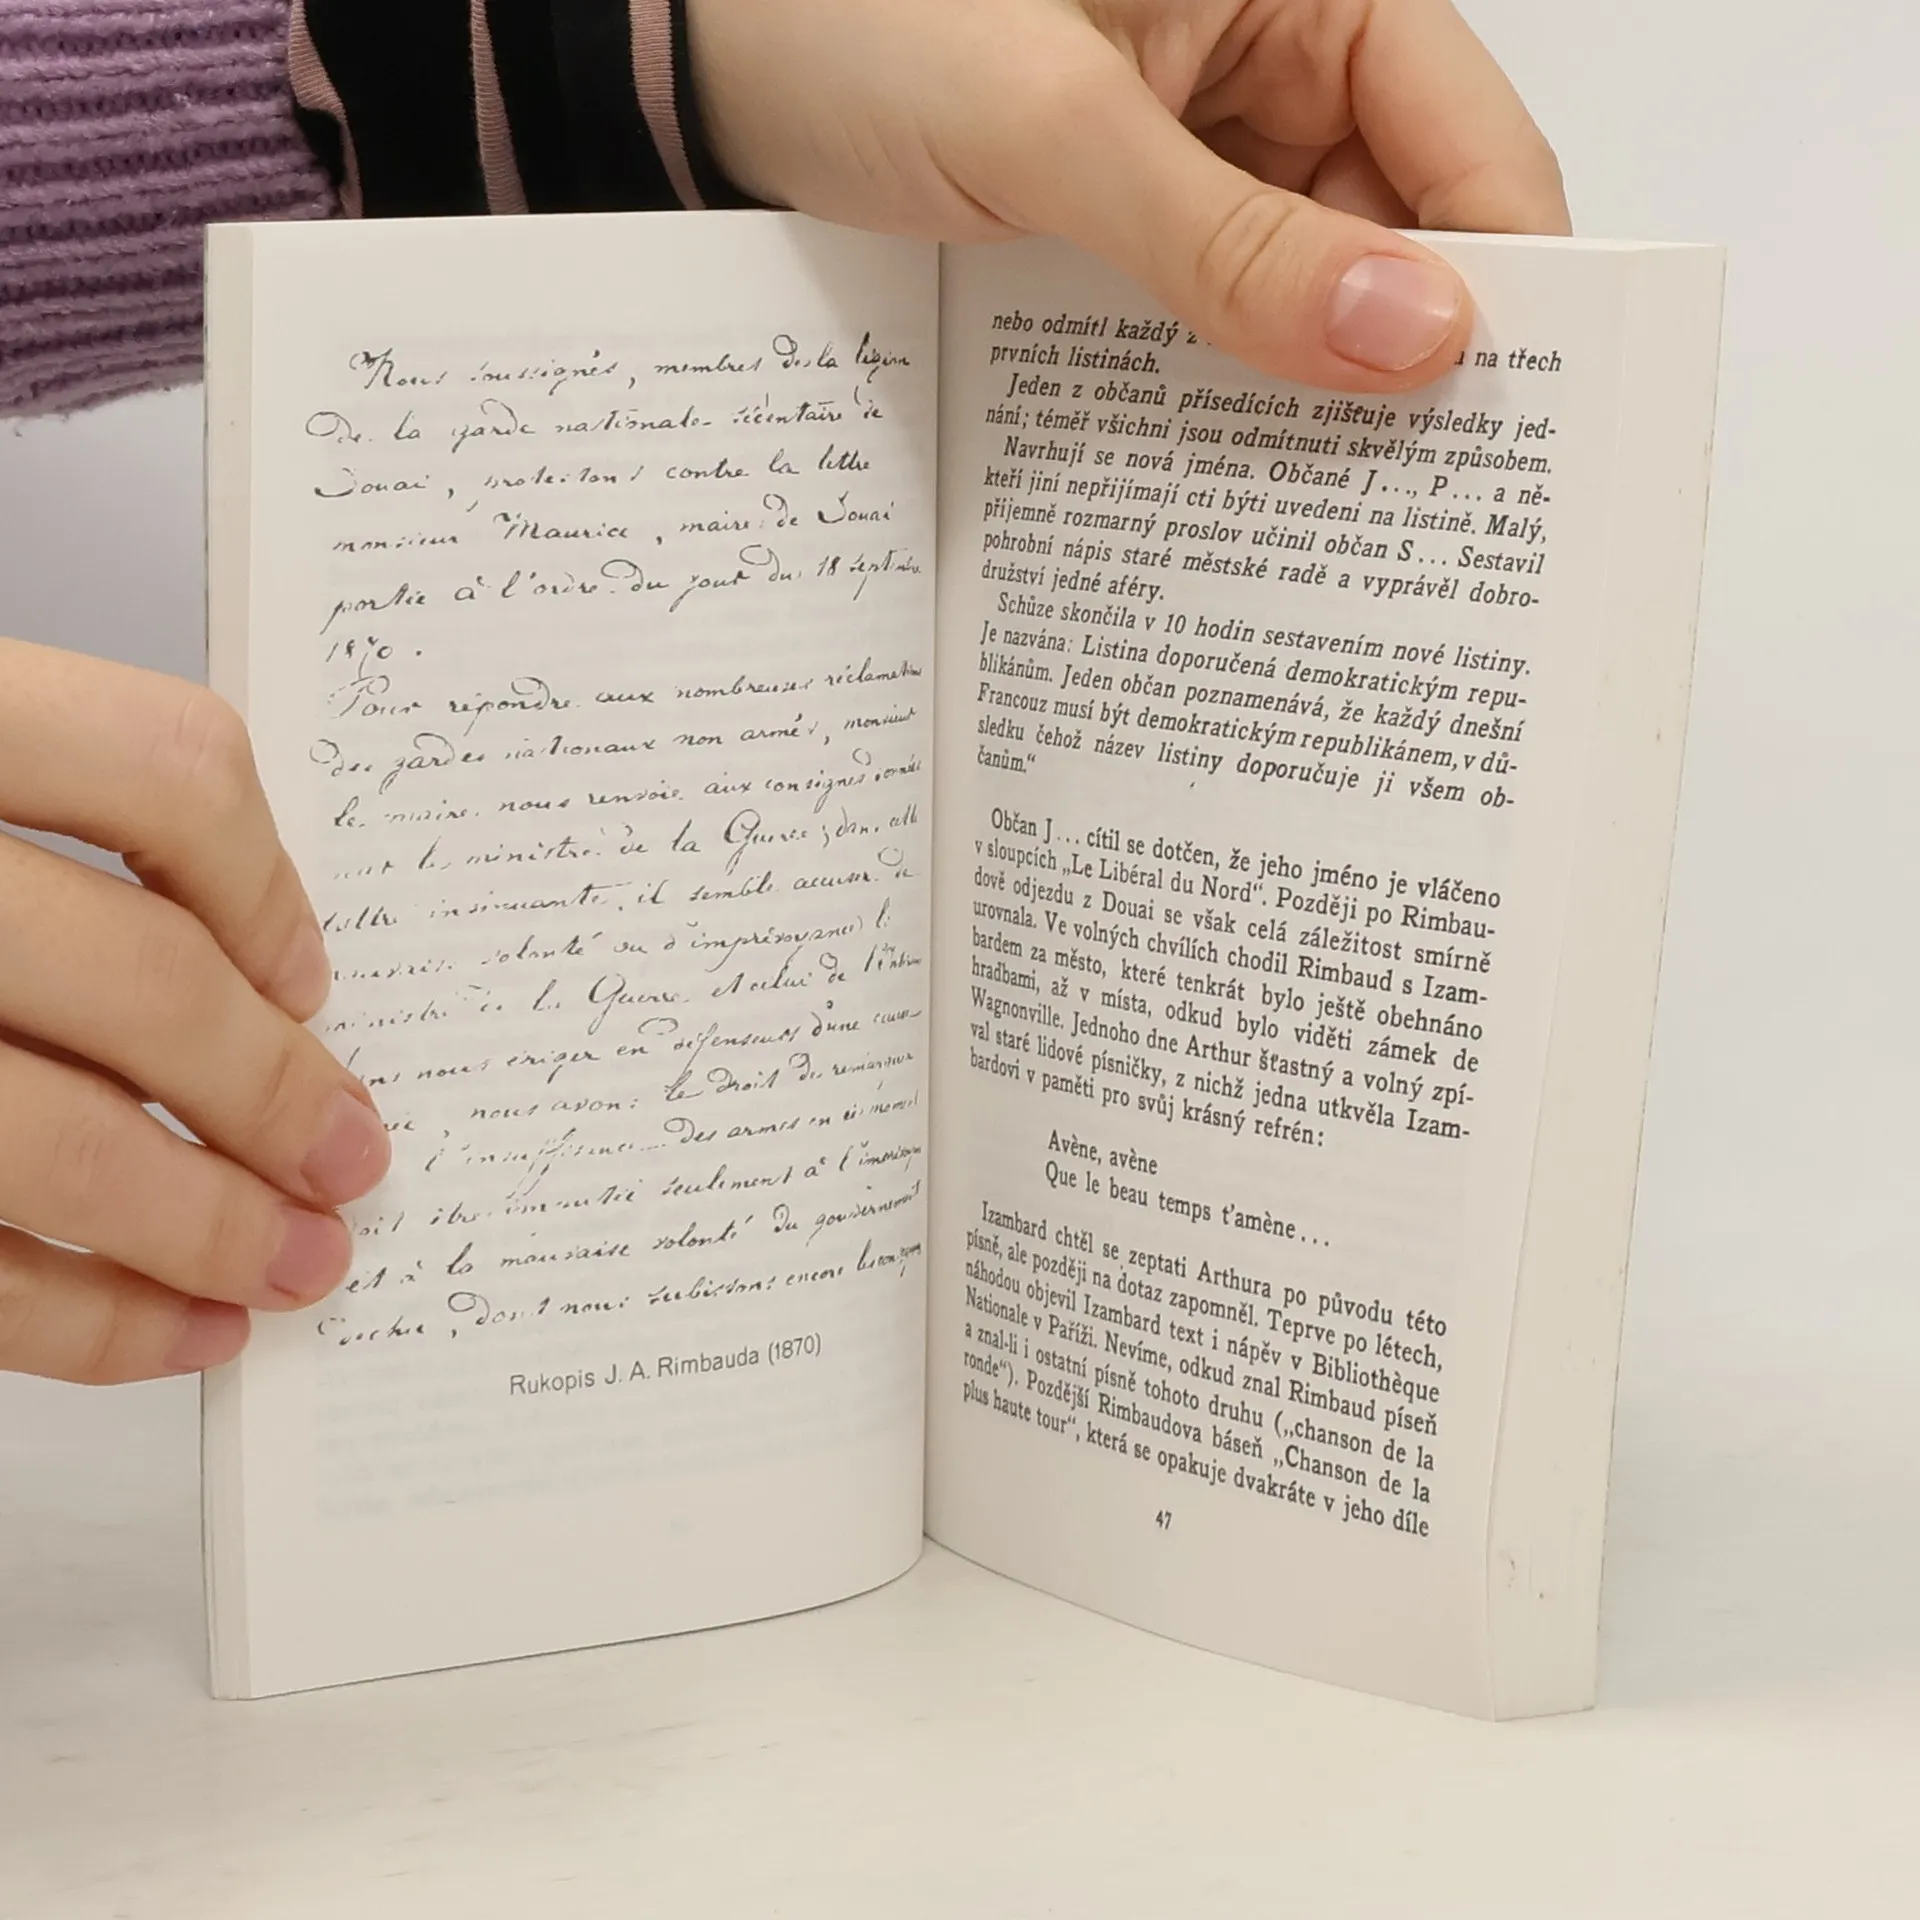 Nous soussignés, membres de la légion
De la garde nationale sédentaire de
Douai, protestons contre la lettre
monsieur Maurice, maire de Douai
portée à l'ordre du jour du 18 septembre
1870.
Pour répondre aux nombreuses réclamations
Des gardes nationaux non armés, monsieur
le maire nous renvoie aux consignes données
par le ministre de la Guerre; dans cette
lettre insinuante, il semble accuser de
mauvaise volonté ou d'imprévoyance le
ministre de la Guerre et celui de l'Intérieur
nous ériger en défenseurs d'une cause
, nous avons le droit de remarquer
l'insuffisance des armes en ce moment
doit être imputée seulement à l'imprévoyance
et à la mauvaise volonté du gouvernement
, dont nous subissons encore les
Rukopis J. A. Rimbauda (1870)
nebo odmítl každý z na třech
prvních listinách.
Jeden z občanů přísedících zjišťuje výsledky jed-
nání; téměř všichni jsou odmítnuti skvělým způsobem.
Navrhují se nová jména. Občané J..., P... a ně-
kteří jiní nepřijímají cti býti uvedeni na listině. Malý,
příjemně rozmarný proslov učinil občan S... Sestavil
pohrobní nápis staré městské radě a vyprávěl dobro-
družství jedné aféry.
Schůze skončila v 10 hodin sestavením nové listiny.
Je nazvána: Listina doporučená demokratickým repu-
blikánům. Jeden občan poznamenává, že každý dnešní
Francouz musí být demokratickým republikánem, v dů-
sledku čehož název listiny doporučuje ji všem ob-
čanům.“
Občan J... cítil se dotčen, že jeho jméno je vláčeno
v sloupcích „Le Libéral du Nord“. Později po Rimbau-
dově odjezdu z Douai se však celá záležitost smírně
urovnala. Ve volných chvílích chodil Rimbaud s Izam-
bardem za město, které tenkrát bylo ještě obehnáno
hradbami, až v místa, odkud bylo viděti zámek de
Wagnonville. Jednoho dne Arthur šťastný a volný zpí-
val staré lidové písničky, z nichž jedna utkvěla Izam-
bardovi v paměti pro svůj krásný refrén:
Avène, avène
Que le beau temps t'amène...
Izambard chtěl se zeptati Arthura po původu této
písně, ale později na dotaz zapomněl. Teprve po létech,
náhodou objevil Izambard text i nápěv v Bibliothèque
Nationale v Paříži. Nevíme, odkud znal Rimbaud píseň
a znal-li i ostatní písně tohoto druhu („chanson de la
ronde“). Pozdější Rimbaudova báseň „Chanson de la
plus haute tour“, která se opakuje dvakráte v jeho díle
47